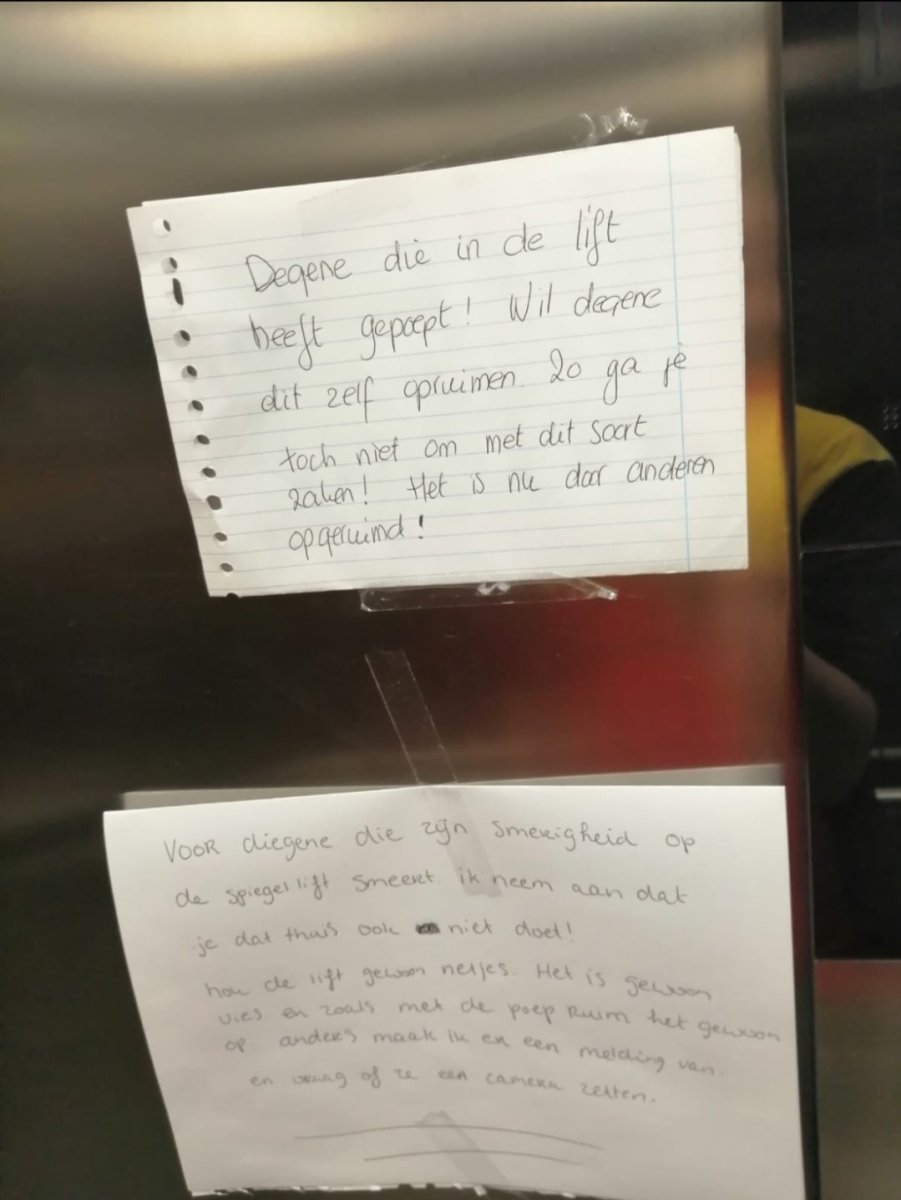 Degene die in de lift
heeft gepoept! Wil degene
dit zelf opruimen. Zo ga je
toch niet om met dit soort
zaken! Het is nu door anderen
opgeruimd!
VOOR diegene die zijn smerigheid op
de spiegel lift smeert. ik neem aan dat
je dat thuis ook niet doet!
hou de lift gewoon netjes. Het is gewoon
vies en zoals met de poep Ruim het gewoon
op anders maak ik er een melding van.
en vraag of ze een camera zetten.